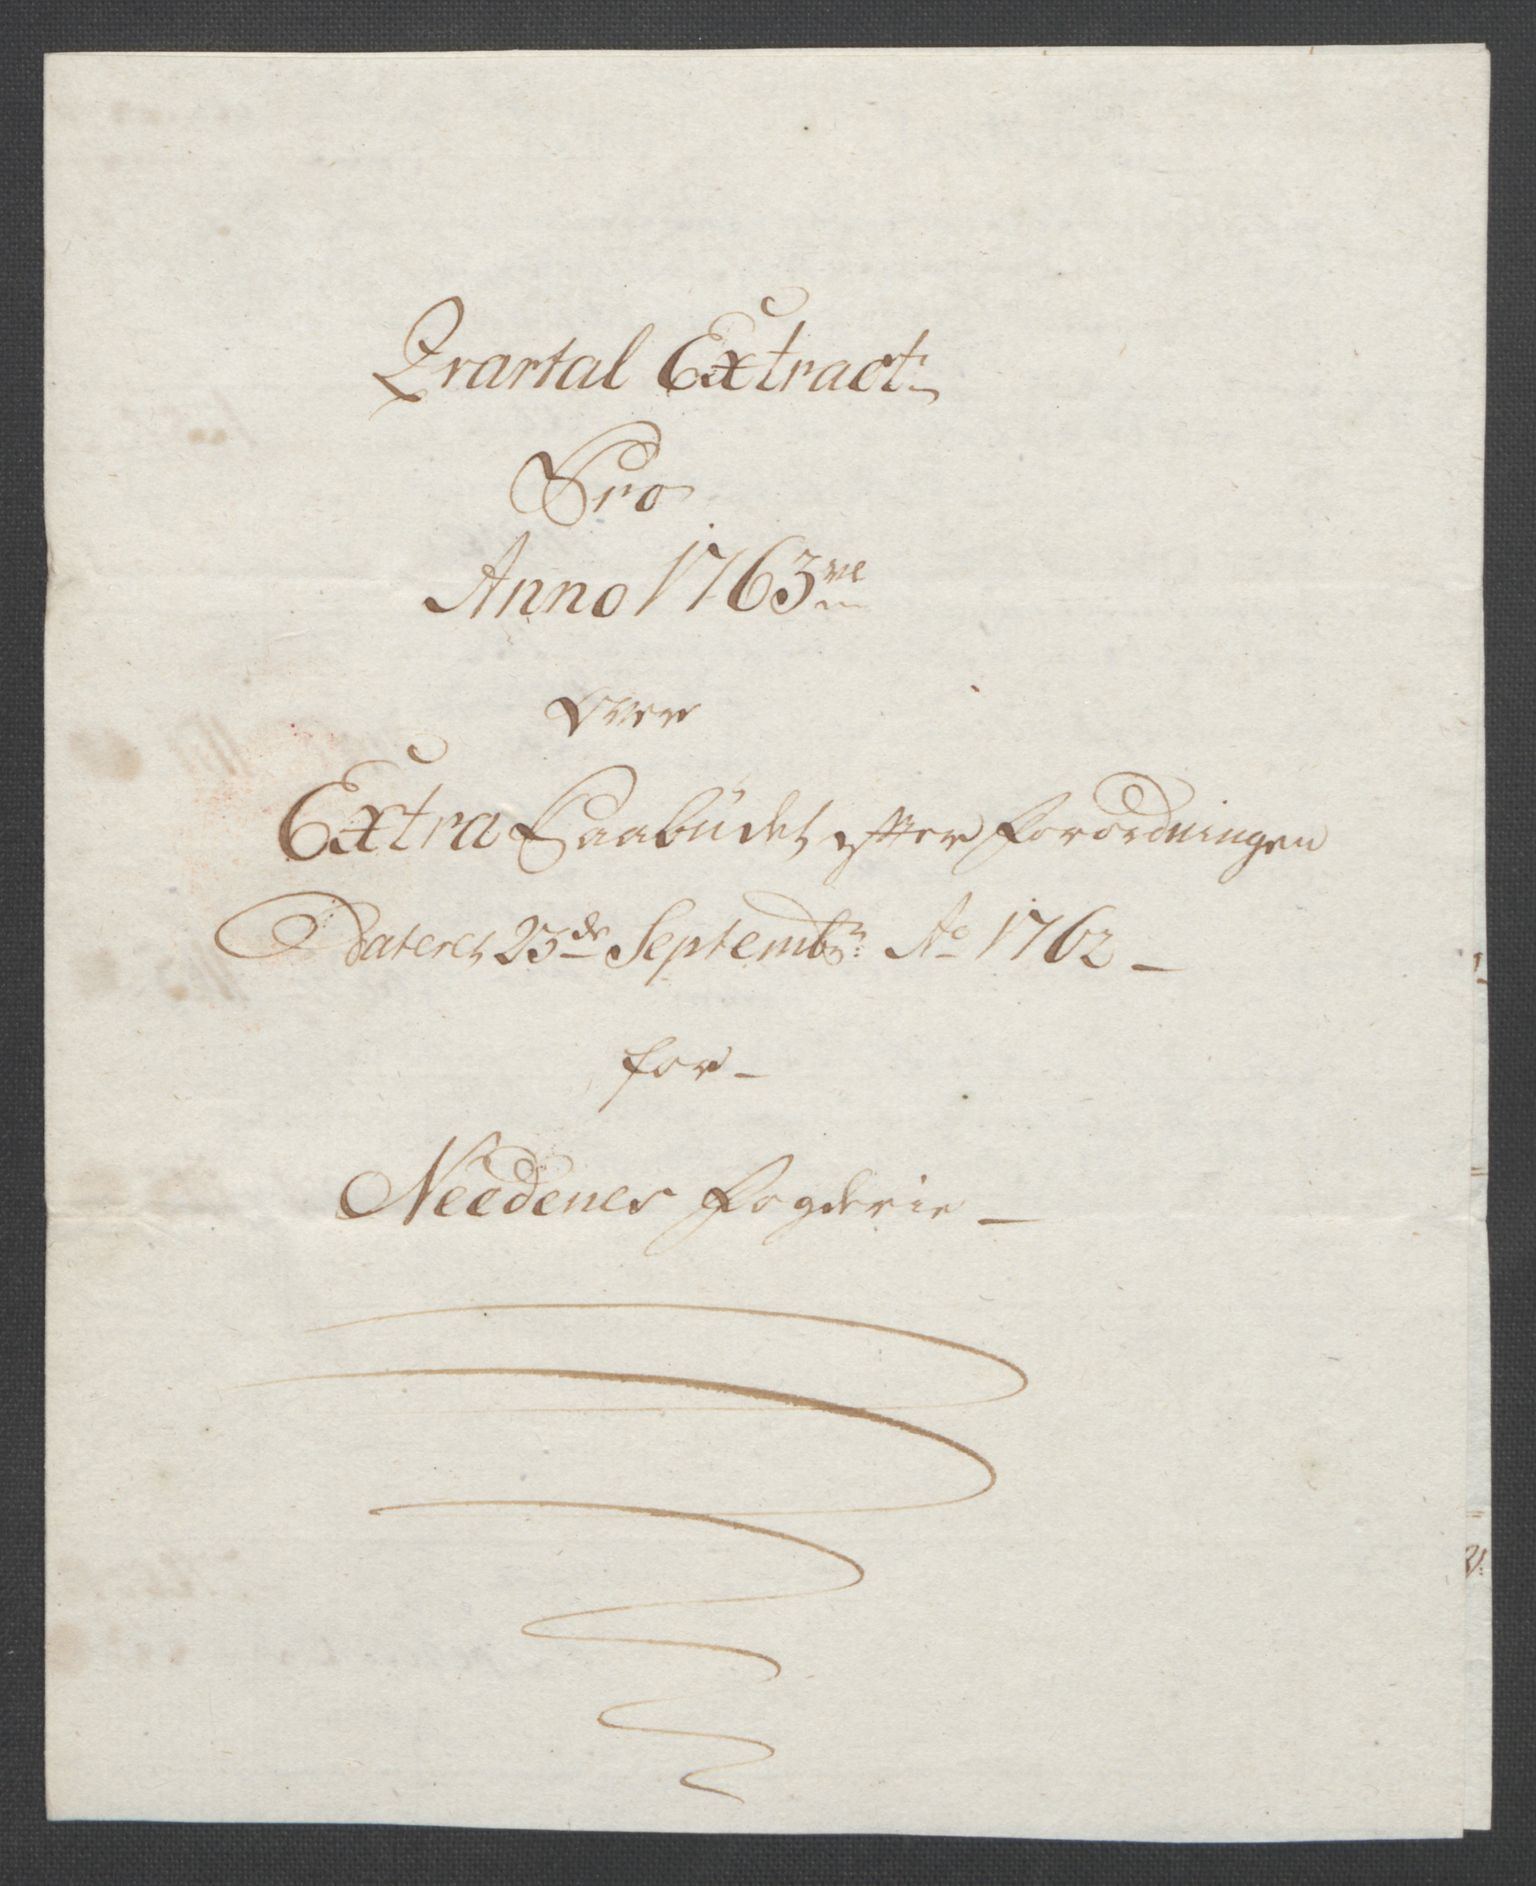 Qvartal Extract
Pro
Anno 1763ve
Over
Extra Paabüdet efter forordningen
Dateret 23de Septembr: Ao 1762
for
Needenes fogderie